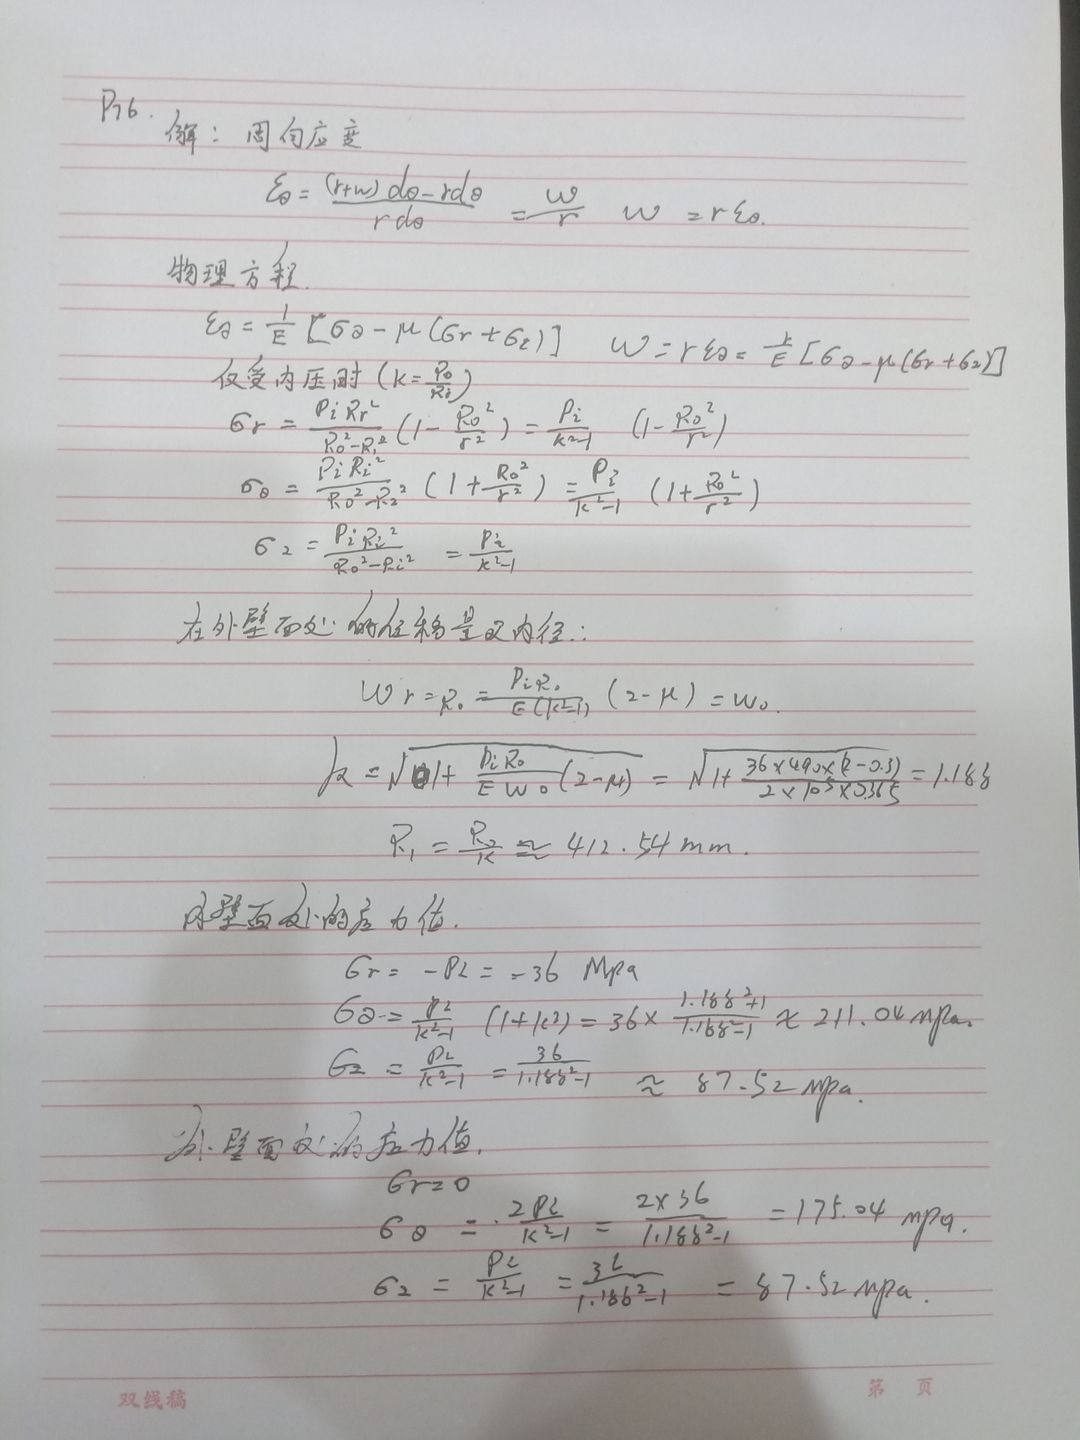 P76.
解：周向应变
εθ = (r+w)dθ-rdθ / rdθ = w/r w = rεθ.
物理方程.
εθ = 1/E [σθ - μ(σr+σz)] w = rεθ = r/E [σθ - μ(σr+σz)]
仅受内压时 (k = Ro/Ri)
σr = PiRr²/(Ro²-Ri²) (1 - Ro²/r²) = Pi/(k²-1) (1 - Ro²/r²)
σθ = PiRi²/(Ro²-Ri²) (1 + Ro²/r²) = Pi/(k²-1) (1 + Ro²/r²)
σz = PiRi²/(Ro²-Ri²) = Pi/(k²-1)
在外壁面处的位移量及内径：
Wr=Ro = PiRo/E(k²-1) (2-μ) = Wo.
k = √(1 + PiRo/EWo (2-μ)) = √(1 + 36×490×(2-0.3) / 2×10⁵×0.365) = 1.188
R1 = Ro/k ≅ 412.54mm.
内壁面处的应力值.
σr = -Pi = -36 Mpa
σθ = Pi/(k²-1) (1+k²) = 36 × (1.188²+1)/(1.188²-1) ≈ 211.04mpa.
σz = Pi/(k²-1) = 36/(1.188²-1) ≈ 87.52mpa.
外壁面处的应力值.
σr=0
σθ = 2Pi/(k²-1) = 2×36/(1.188²-1) = 175.04 mpa.
σz = Pi/(k²-1) = 36/(1.188²-1) = 87.52mpa.
双线稿 第 页